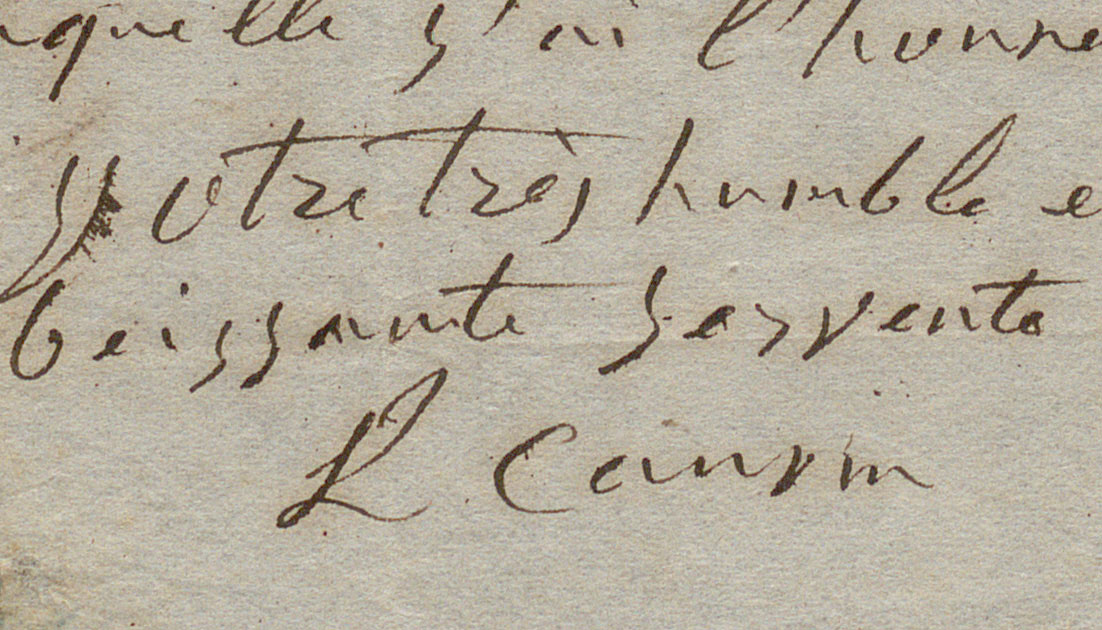 aquelle j'ai l'honne
votre très humble e
beissante servente
L Cauvin